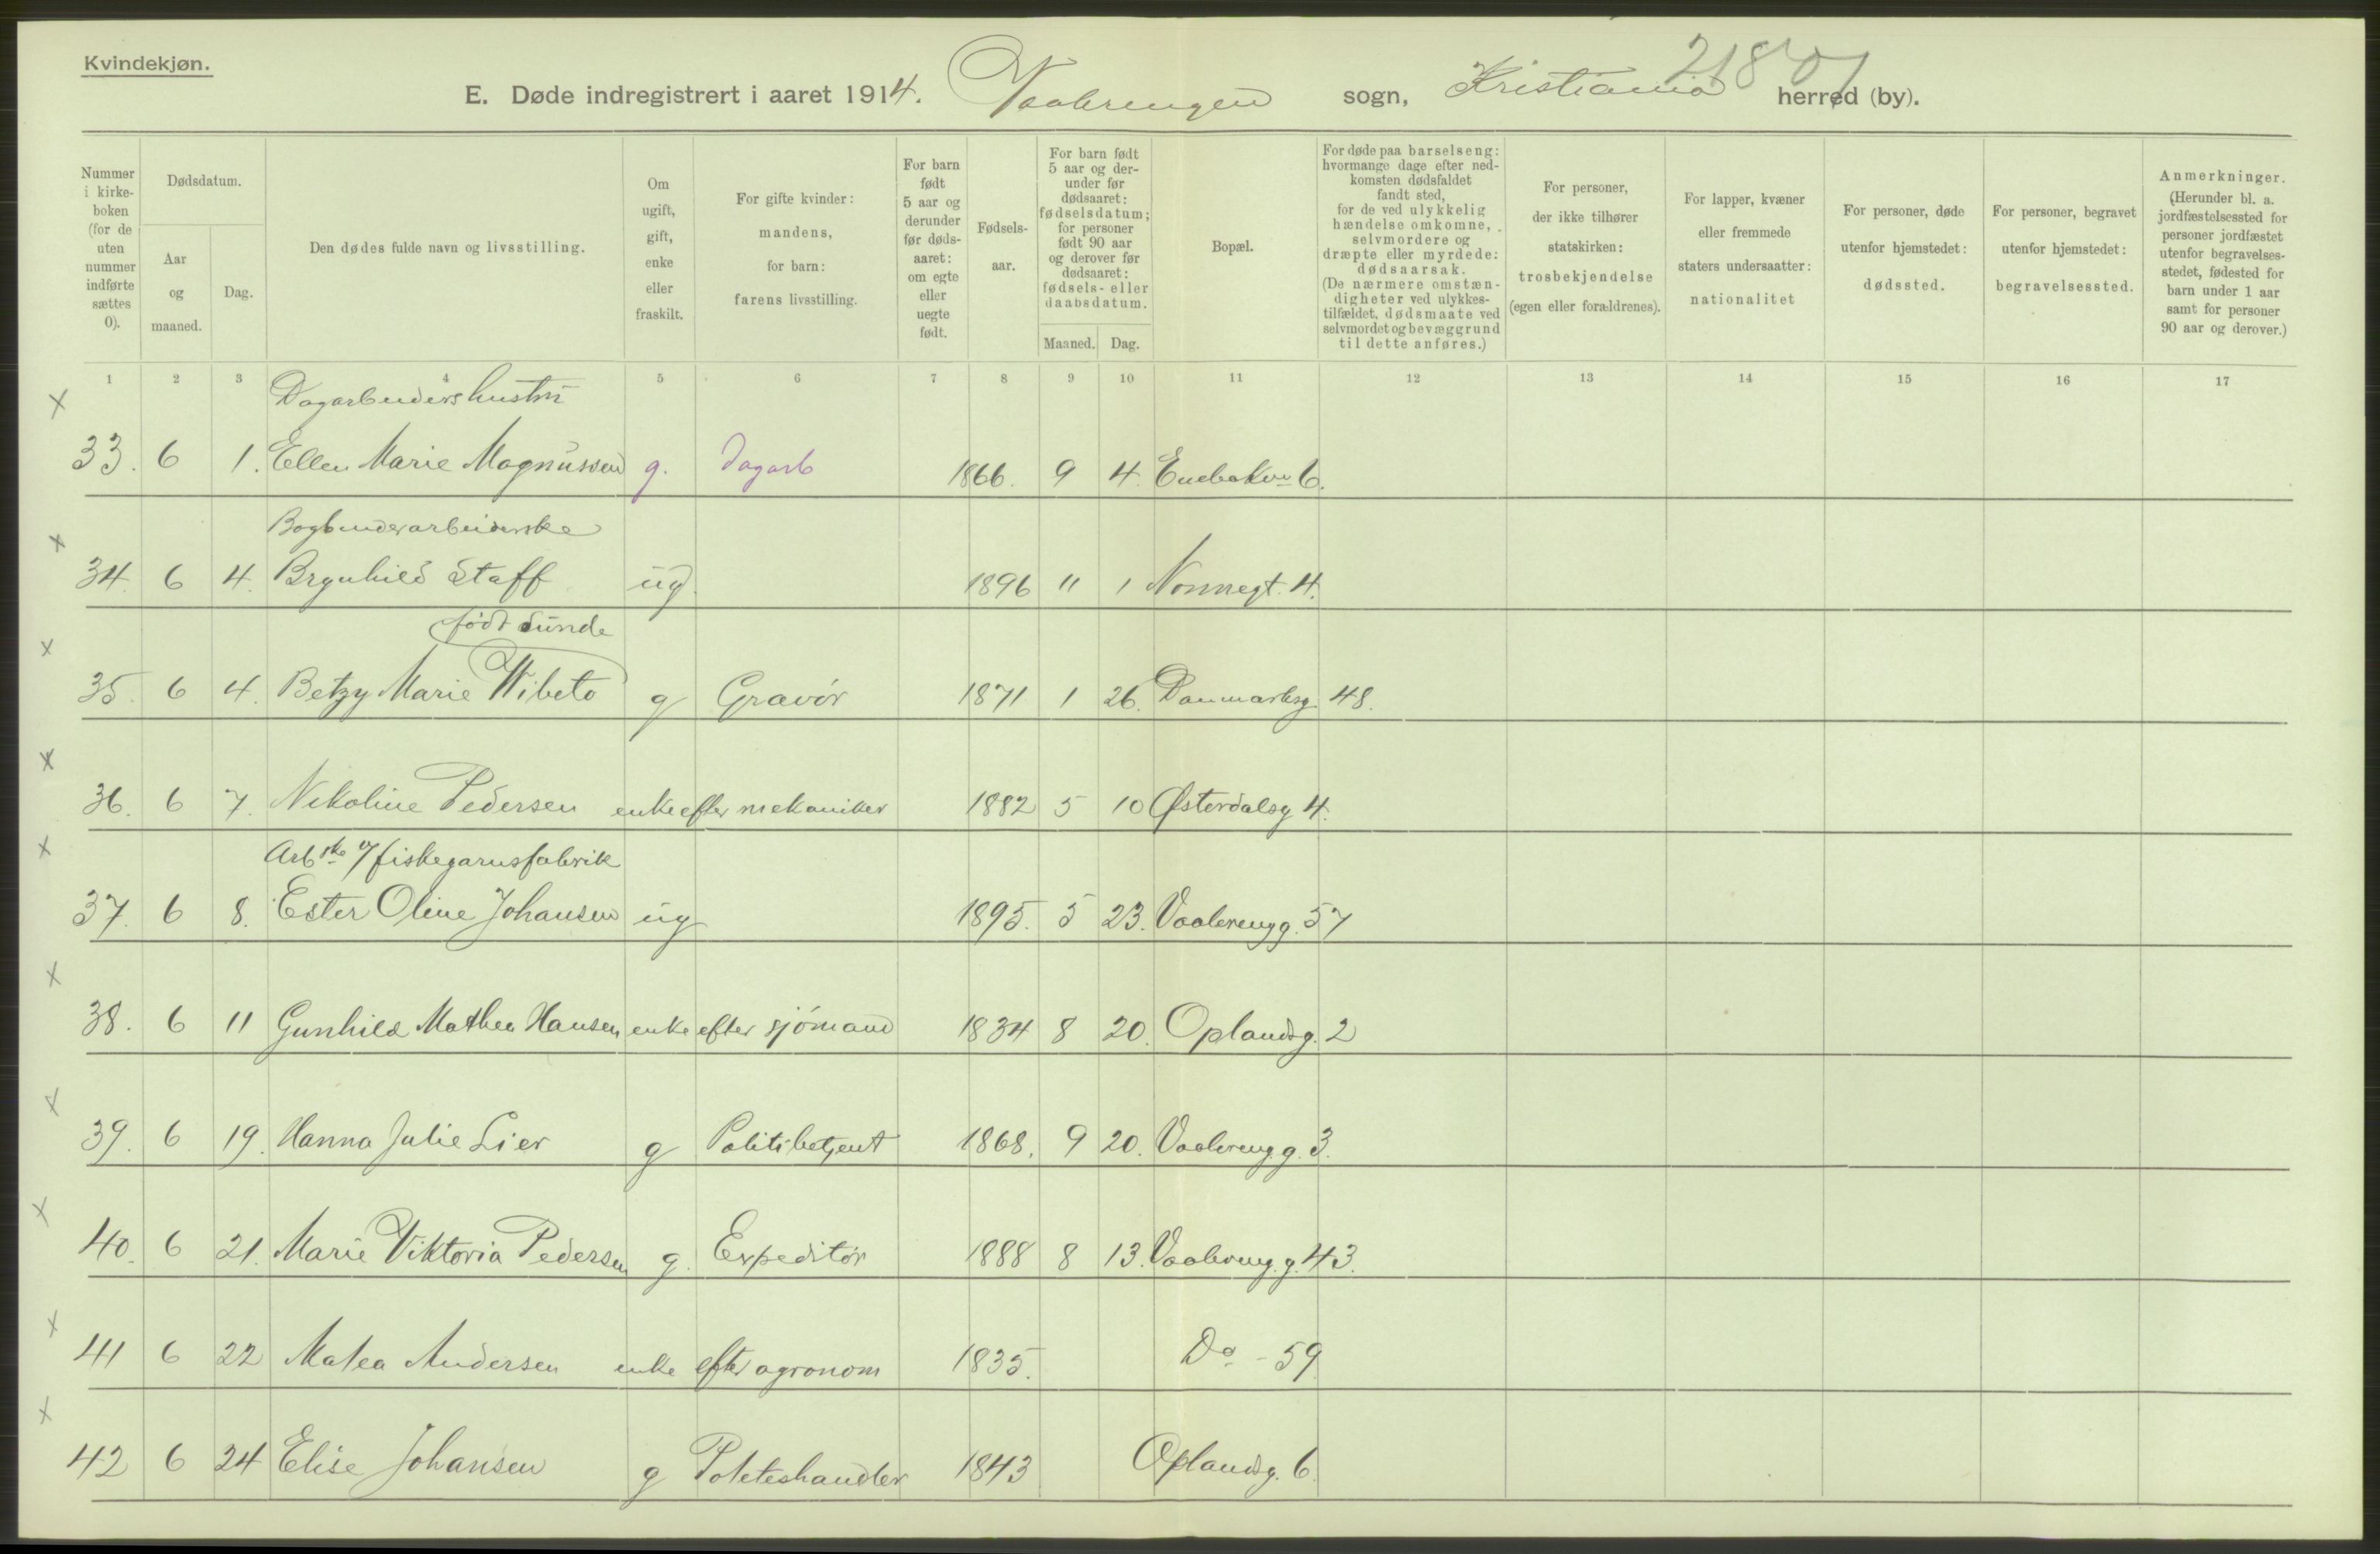 Kvindekjøn.
21801
E. Døde indregistrert i aaret 1914. Vaalerengen sogn, Kristiania herred (by).
Nummer i kirke-boken (for de uten nummer indførte sættes 0).
Dødsdatum.
Aar og maaned.
Dag.
Den dødes fulde navn og livsstilling.
Om ugift, gift, enke eller fraskilt.
For gifte kvinder: mandens, for barn: farens livsstilling.
For barn født 5 aar og derunder før døds-aaret: om egte eller uegte født.
Fødsels-aar.
For barn født 5 aar og der-under før dødsaaret: fødselsdatum; for personer født 90 aar og derover før dødsaaret: fødsels- eller daabsdatum.
Maaned. Dag.
Bopæl.
For døde paa barselseng: hvormange dage efter ned-komsten dødsfaldet fandt sted, for de ved ulykkelig hændelse omkomne, selvmordere og dræpte eller myrdede: dødsaarsak. (De nærmere omstæn-digheter ved ulykkes-tilfældet, dødsmaate ved selvmordet og bevæggrund til dette anføres.)
For personer, der ikke tilhører statskirken: trosbekjendelse (egen eller forældrenes).
For lapper, kvæner eller fremmede staters undersaatter: nationalitet
For personer, døde utenfor hjemstedet: dødssted.
For personer, begravet utenfor hjemstedet: begravelsessted.
Anmerkninger. (Herunder bl. a. jordfæstelsessted for personer jordfæstet utenfor begravelses-stedet, fødested for barn under 1 aar samt for personer 90 aar og derover.)
1 2 3 4 5 6 7 8 9 10 11 12 13 14 15 16 17
x Dagarbeiders hustru
33. 6 1. Ellen Marie Magnussen g. dagarb 1866. 9 4. Enebakvn 6.
x Bogbinderarbeiderske
34. 6 4. Brynhild Staff ug. 1896 11 1 Nonnegt. 4.
født Sunde
x 35. 6 4. Betzy Marie Wibeto g Gravör 1871 1 26. Danmarksg 48.
x 36. 6 7. Nikoline Pedersen enke efter mekaniker 1882 5 10 Østerdalsg 4.
x Arbske v/ fiskegarnsfabrik
37. 6 8. Ester Oline Johansen ug 1895. 5 23. Vaalerengg. 57
x 38. 6 11 Gunhild Mathea Hansen enke efter sjömand 1834 8 20. Oplandsg. 2
x 39. 6 19. Hanna Julie Lier g Politibetjent 1868. 9 20. Vaalereng.g. 3.
x 40. 6 21. Marie Viktoria Pedersen g. Expeditör 1888 8 13. Vaalereng.g. 43.
x 41 6 22 Matea Andersen enke efter agronom 1835. Do - 59
x 42 6 24 Elise Johansen g Poteteshandler 1843 Oplandsg. 6.